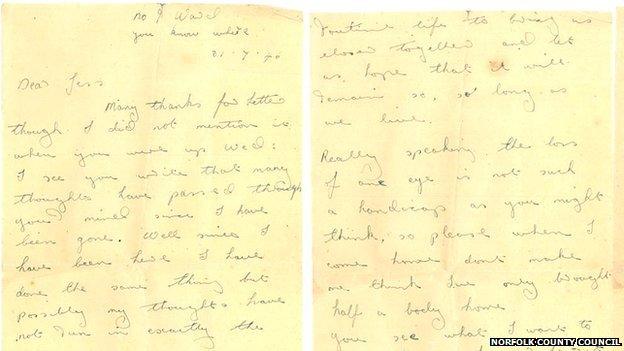 No 9 Ward
you know where
21.7.40
Dear Jess
Many thanks for letter
though I did not mention it
when you were up Wed:
I see you write that many
thoughts have passed through
your mind since I have
been gone. Well since I
have been here I have
done the same thing but
possibly my thoughts have
not run in exactly the
routine life to bring us
closer together and let
us hope that it will
remain so, so long as
we live.
Really speaking the loss
of one eye is not such
a handicap as you might
think, so please when I
come home dont make
me think Ive only brought
half a body home
you see what I want to
NORFOLK COUNTY COUNCIL